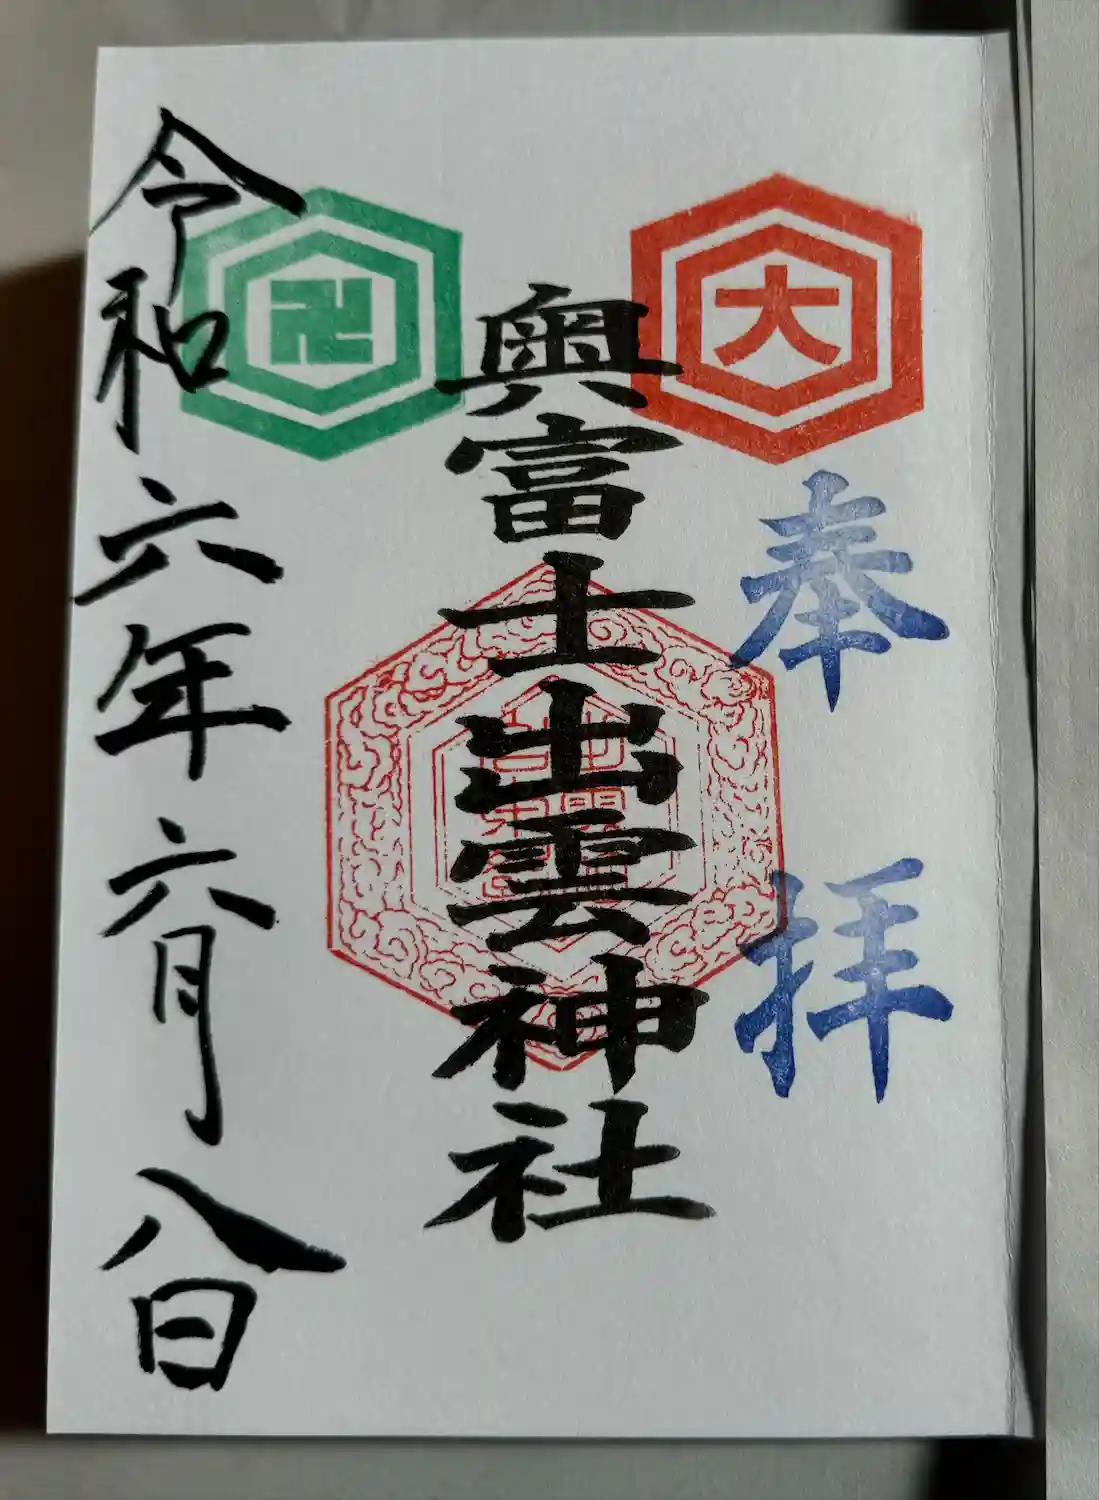 大
奉拝
奥富士出雲神社
卍
令和六年六月八日